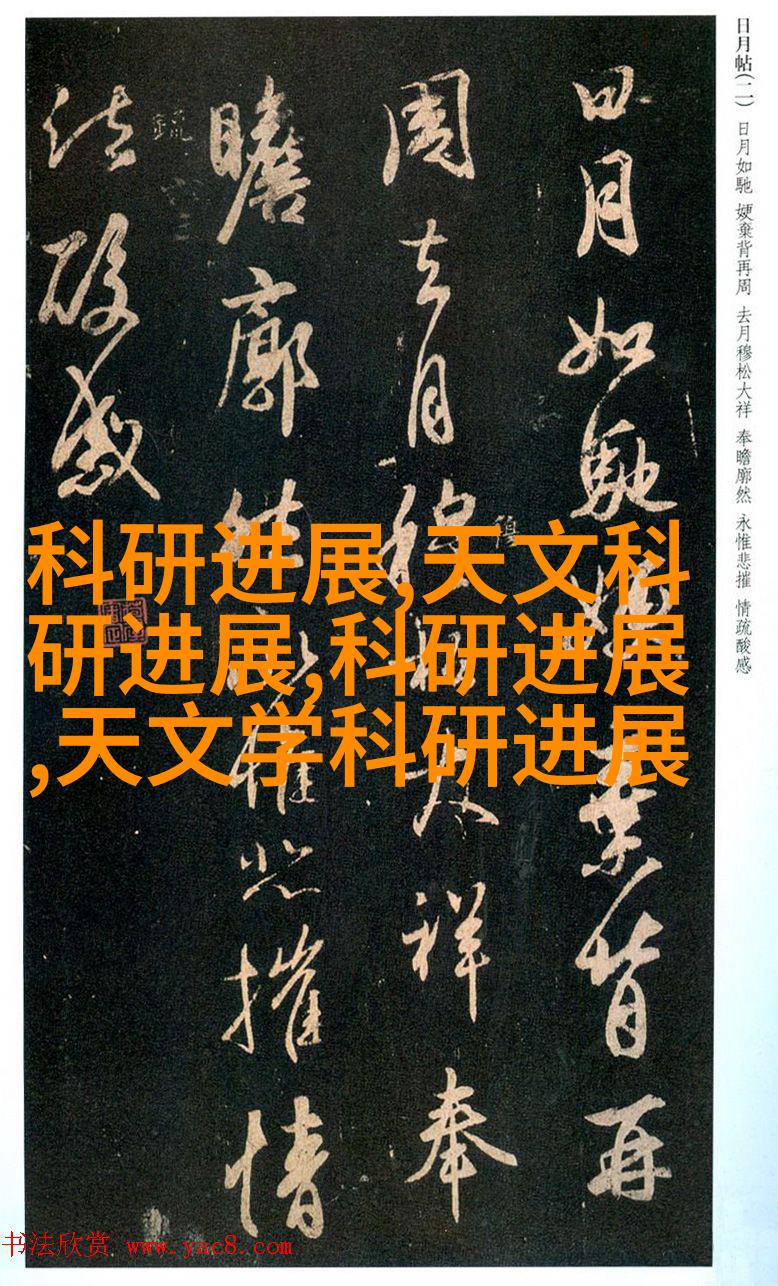 日月帖(二) 日月如馳 㛐棄背再周 去月穆松大祥 奉瞻廓然 永惟悲摧 情疏酸感
日月如馳㛐棄背再
周去月穆松大祥奉
穆
瞻廓然永惟悲摧情
疏酸感
疏
科研进展,天文科
研进展,科研进展
,天文学科研进展
书法欣赏 www.yac8.com